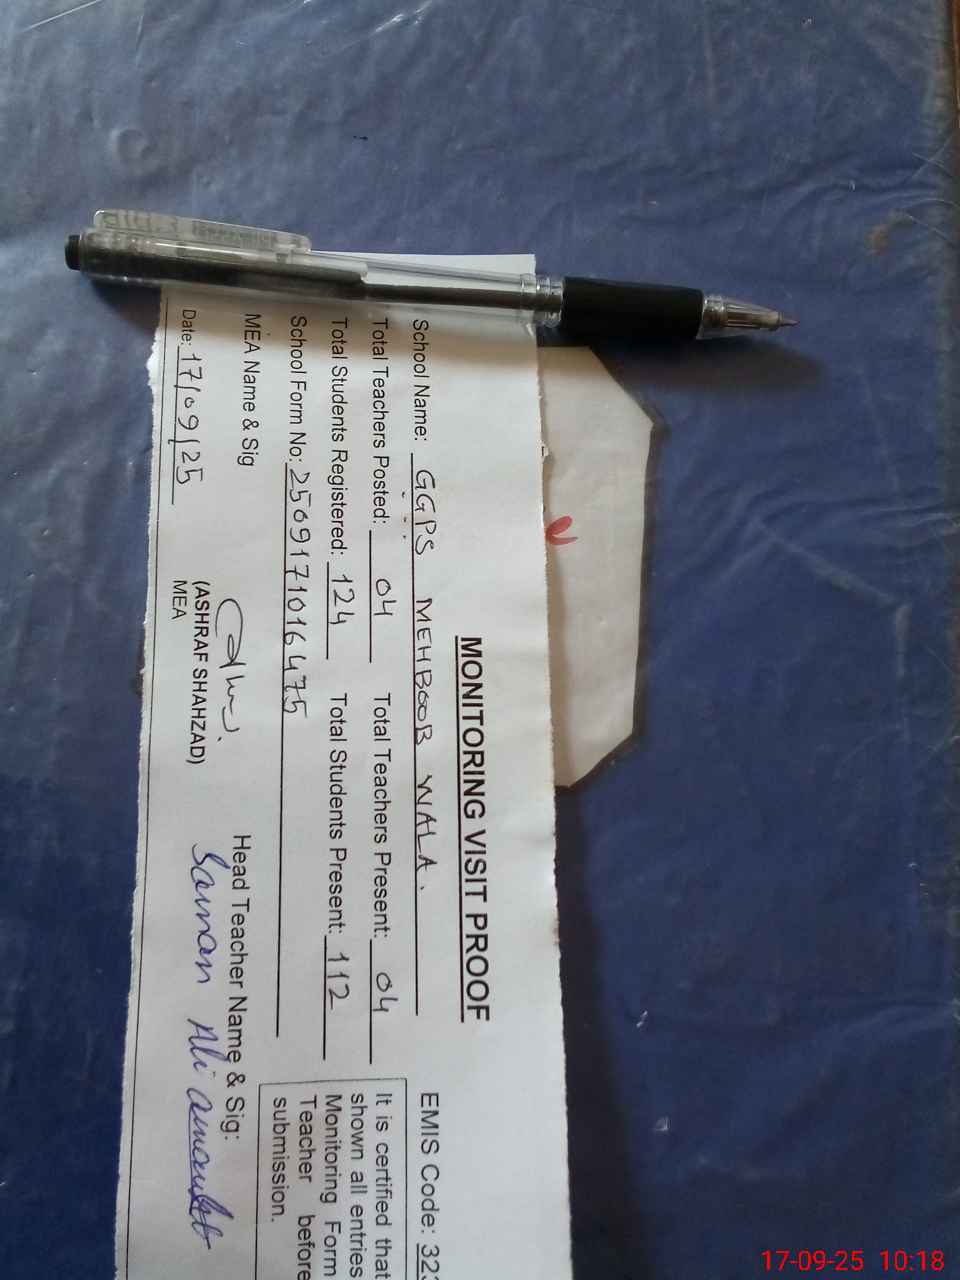 MONITORING VISIT PROOF
School Name: GGPS MEHBOOB WALA. EMIS Code: 323
Total Teachers Posted: 04 Total Teachers Present: 04
Total Students Registered: 124 Total Students Present: 112
School Form No: 2509171016475
It is certified that
shown all entries
Monitoring Form
Teacher before
submission.
MEA Name & Sig
(ASHRAF SHAHZAD)
MEA
Head Teacher Name & Sig:
Saman Ali
Date: 17/09/25
17-09-25 10:18